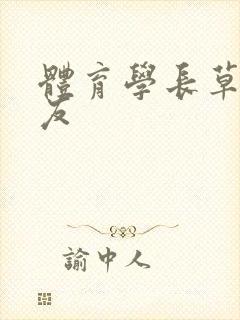 體育學長草
友
諭中人